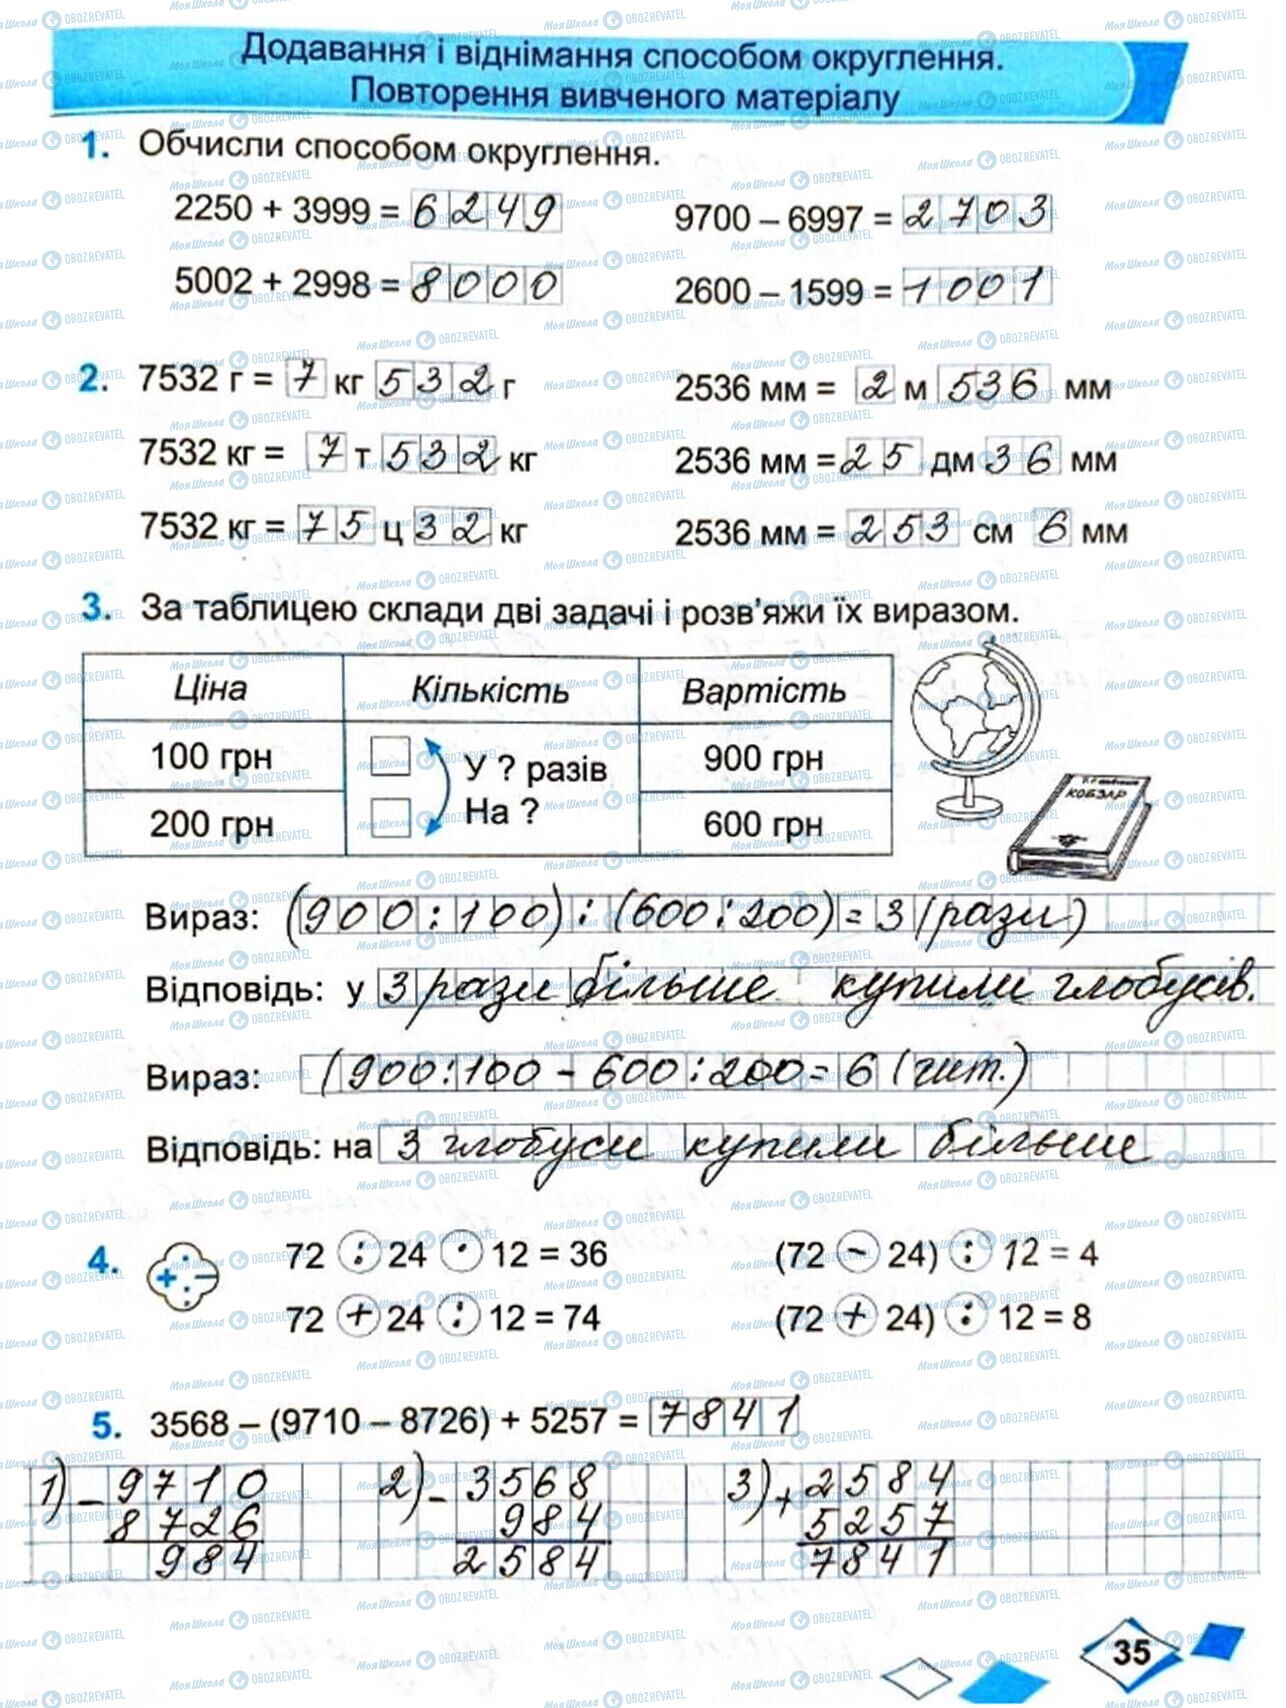 Додавання і віднімання способом округлення.
Повторення вивченого матеріалу
1. Обчисли способом округлення.
2250 + 3999 = 6249
9700 – 6997 = 2703
5002 + 2998 = 8000
2600 – 1599 = 1001
2. 7532 г = 7 кг 532 г
2536 мм = 2 м 536 мм
7532 кг = 7 т 532 кг
2536 мм = 25 дм 36 мм
7532 кг = 75 ц 32 кг
2536 мм = 253 см 6 мм
3. За таблицею склади дві задачі і розв'яжи їх виразом.
Ціна Кількість Вартість
100 грн У ? разів 900 грн
200 грн На ? 600 грн
КОБЗАР
Вираз: (900 : 100) : (600 : 200) = 3 (рази)
Відповідь: у 3 рази більше купили глобусів.
Вираз: (900 : 100 – 600 : 200 = 6 (шт.)
Відповідь: на 3 глобуси купили більше
4. 72 : 24 · 12 = 36
(72 – 24) : 12 = 4
72 + 24 : 12 = 74
(72 + 24) : 12 = 8
5. 3568 – (9710 – 8726) + 5257 = 7841
1) – 9710
8726
984
2) – 3568
984
2584
3) + 2584
5257
7841
35
МояШкола OBOZREVATEL